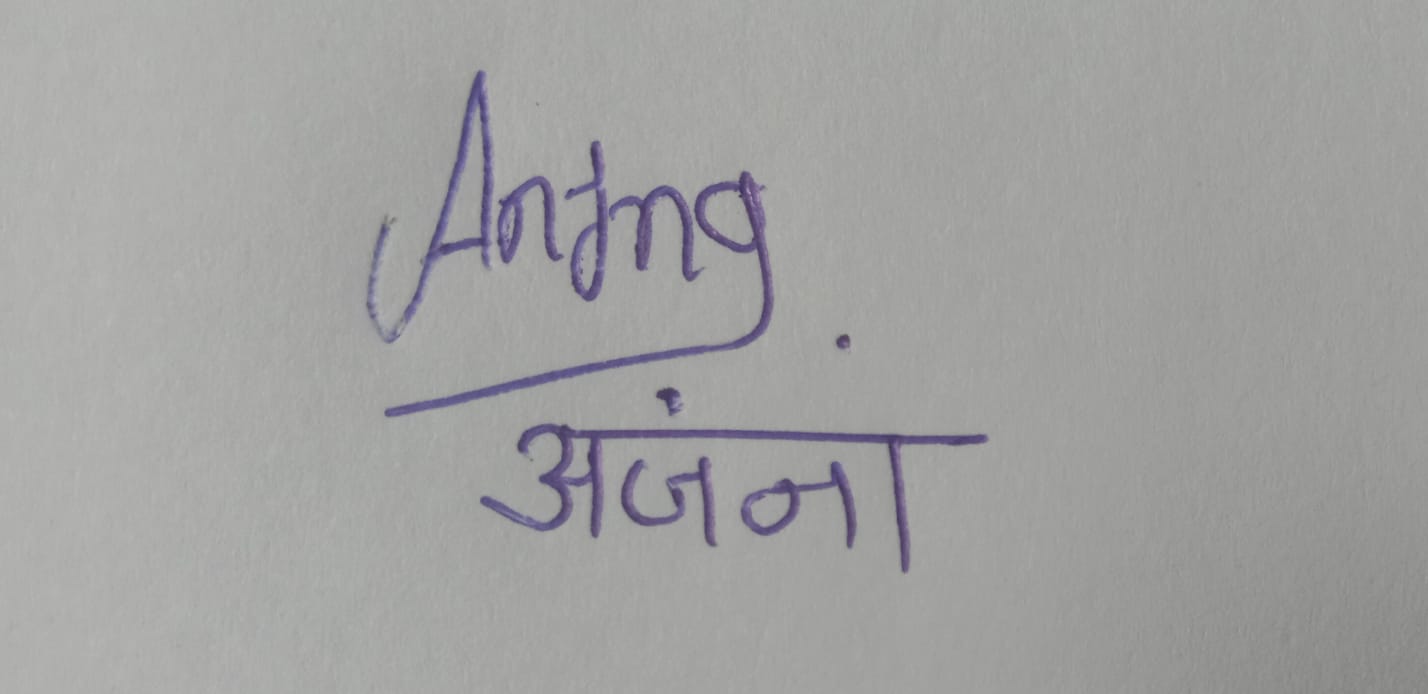 Anjna
अजंना